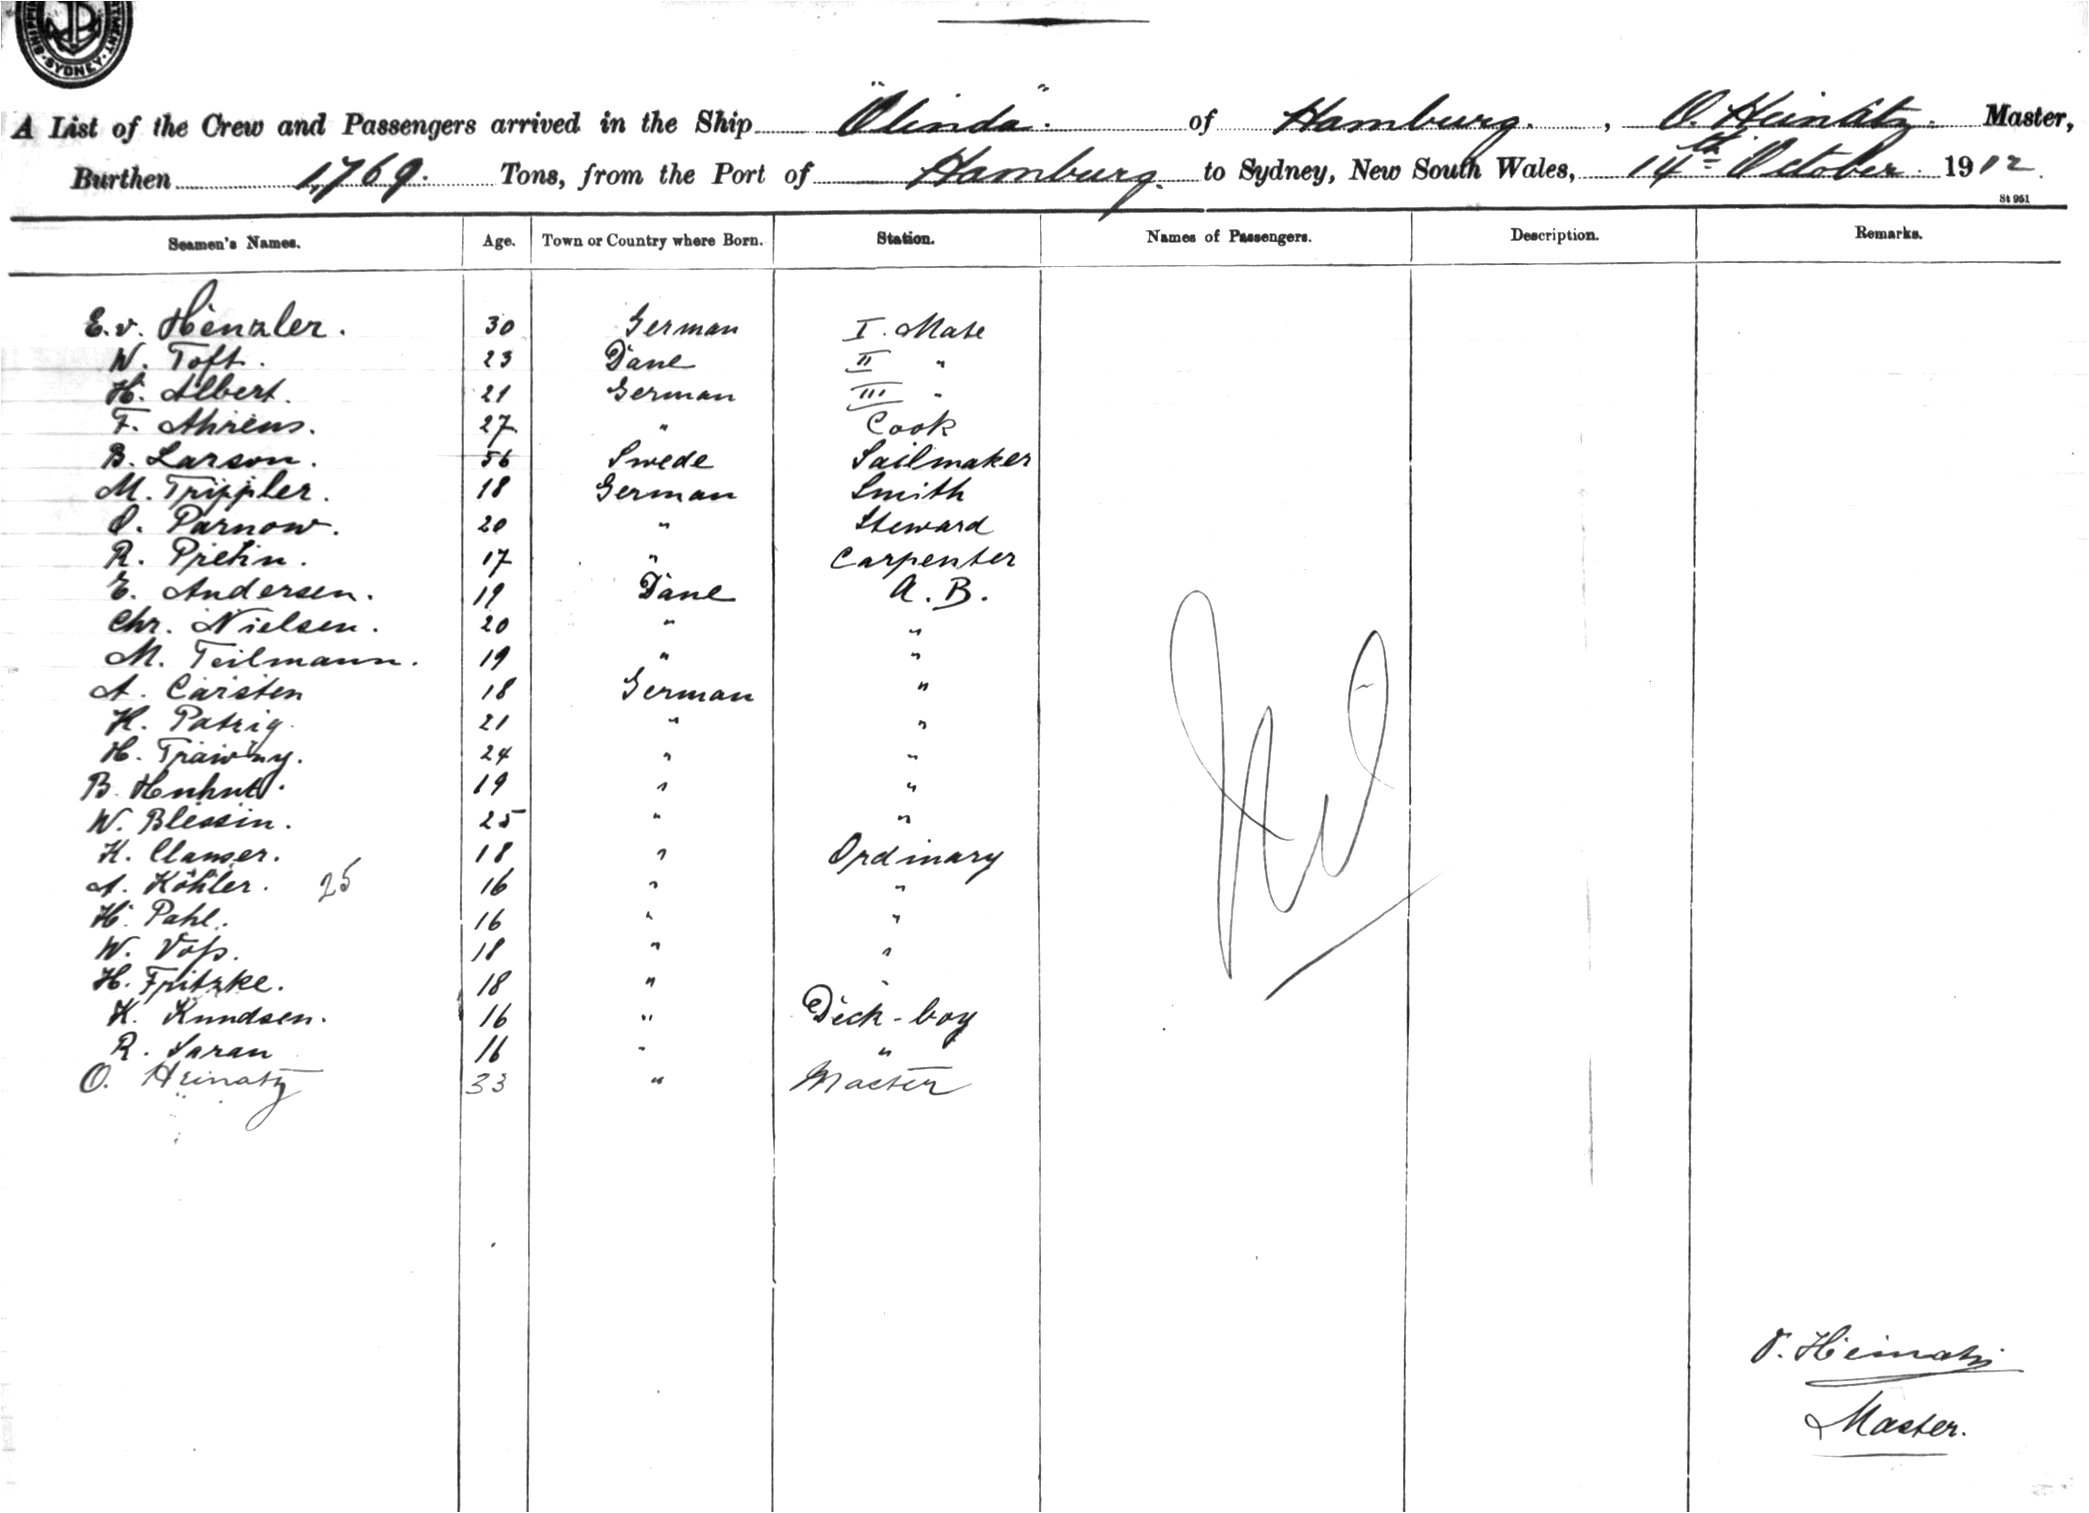 SHIPPI TMENT SYDNEY
A List of the Crew and Passengers arrived in the Ship "Olinda". of Hamburg. , O. Heinatz. Master,
Burthen 1,769. Tons, from the Port of Hamburg. to Sydney, New South Wales, 14th October 1912.
St 951
Seamen's Names. Age. Town or Country where Born. Station. Names of Passengers. Description. Remarks.
E. v. Henzler. 30 German I. Mate
W. Toft. 23 Dane II "
H. Albert. 21 German III "
F. Ahrens. 27 " Cook
B. Larson. 56 Swede Sailmaker
M. Trippler. 18 German Smith
O. Parnow. 20 " Steward
R. 17 " Carpenter
E. Andersen. 19 Dane A. B.
Chr. Nielsen. 20 " "
M. Teilmann. 19 " "
A. Carsten 18 German "
H. Patzig. 21 " "
H. 24 " "
B. 19 " "
W. Blessin. 25 " "
K. Clauser. 18 " Ordinary
A. Köhler. 25 16 " "
H. Pahl. 16 " "
W. Voß. 18 " "
H. Fritzke. 18 " "
K. Knudsen. 16 " Deck-boy
R. Saran 16 " "
O. Heinatz 33 " Master
Nil
O. Heinatz
Master.